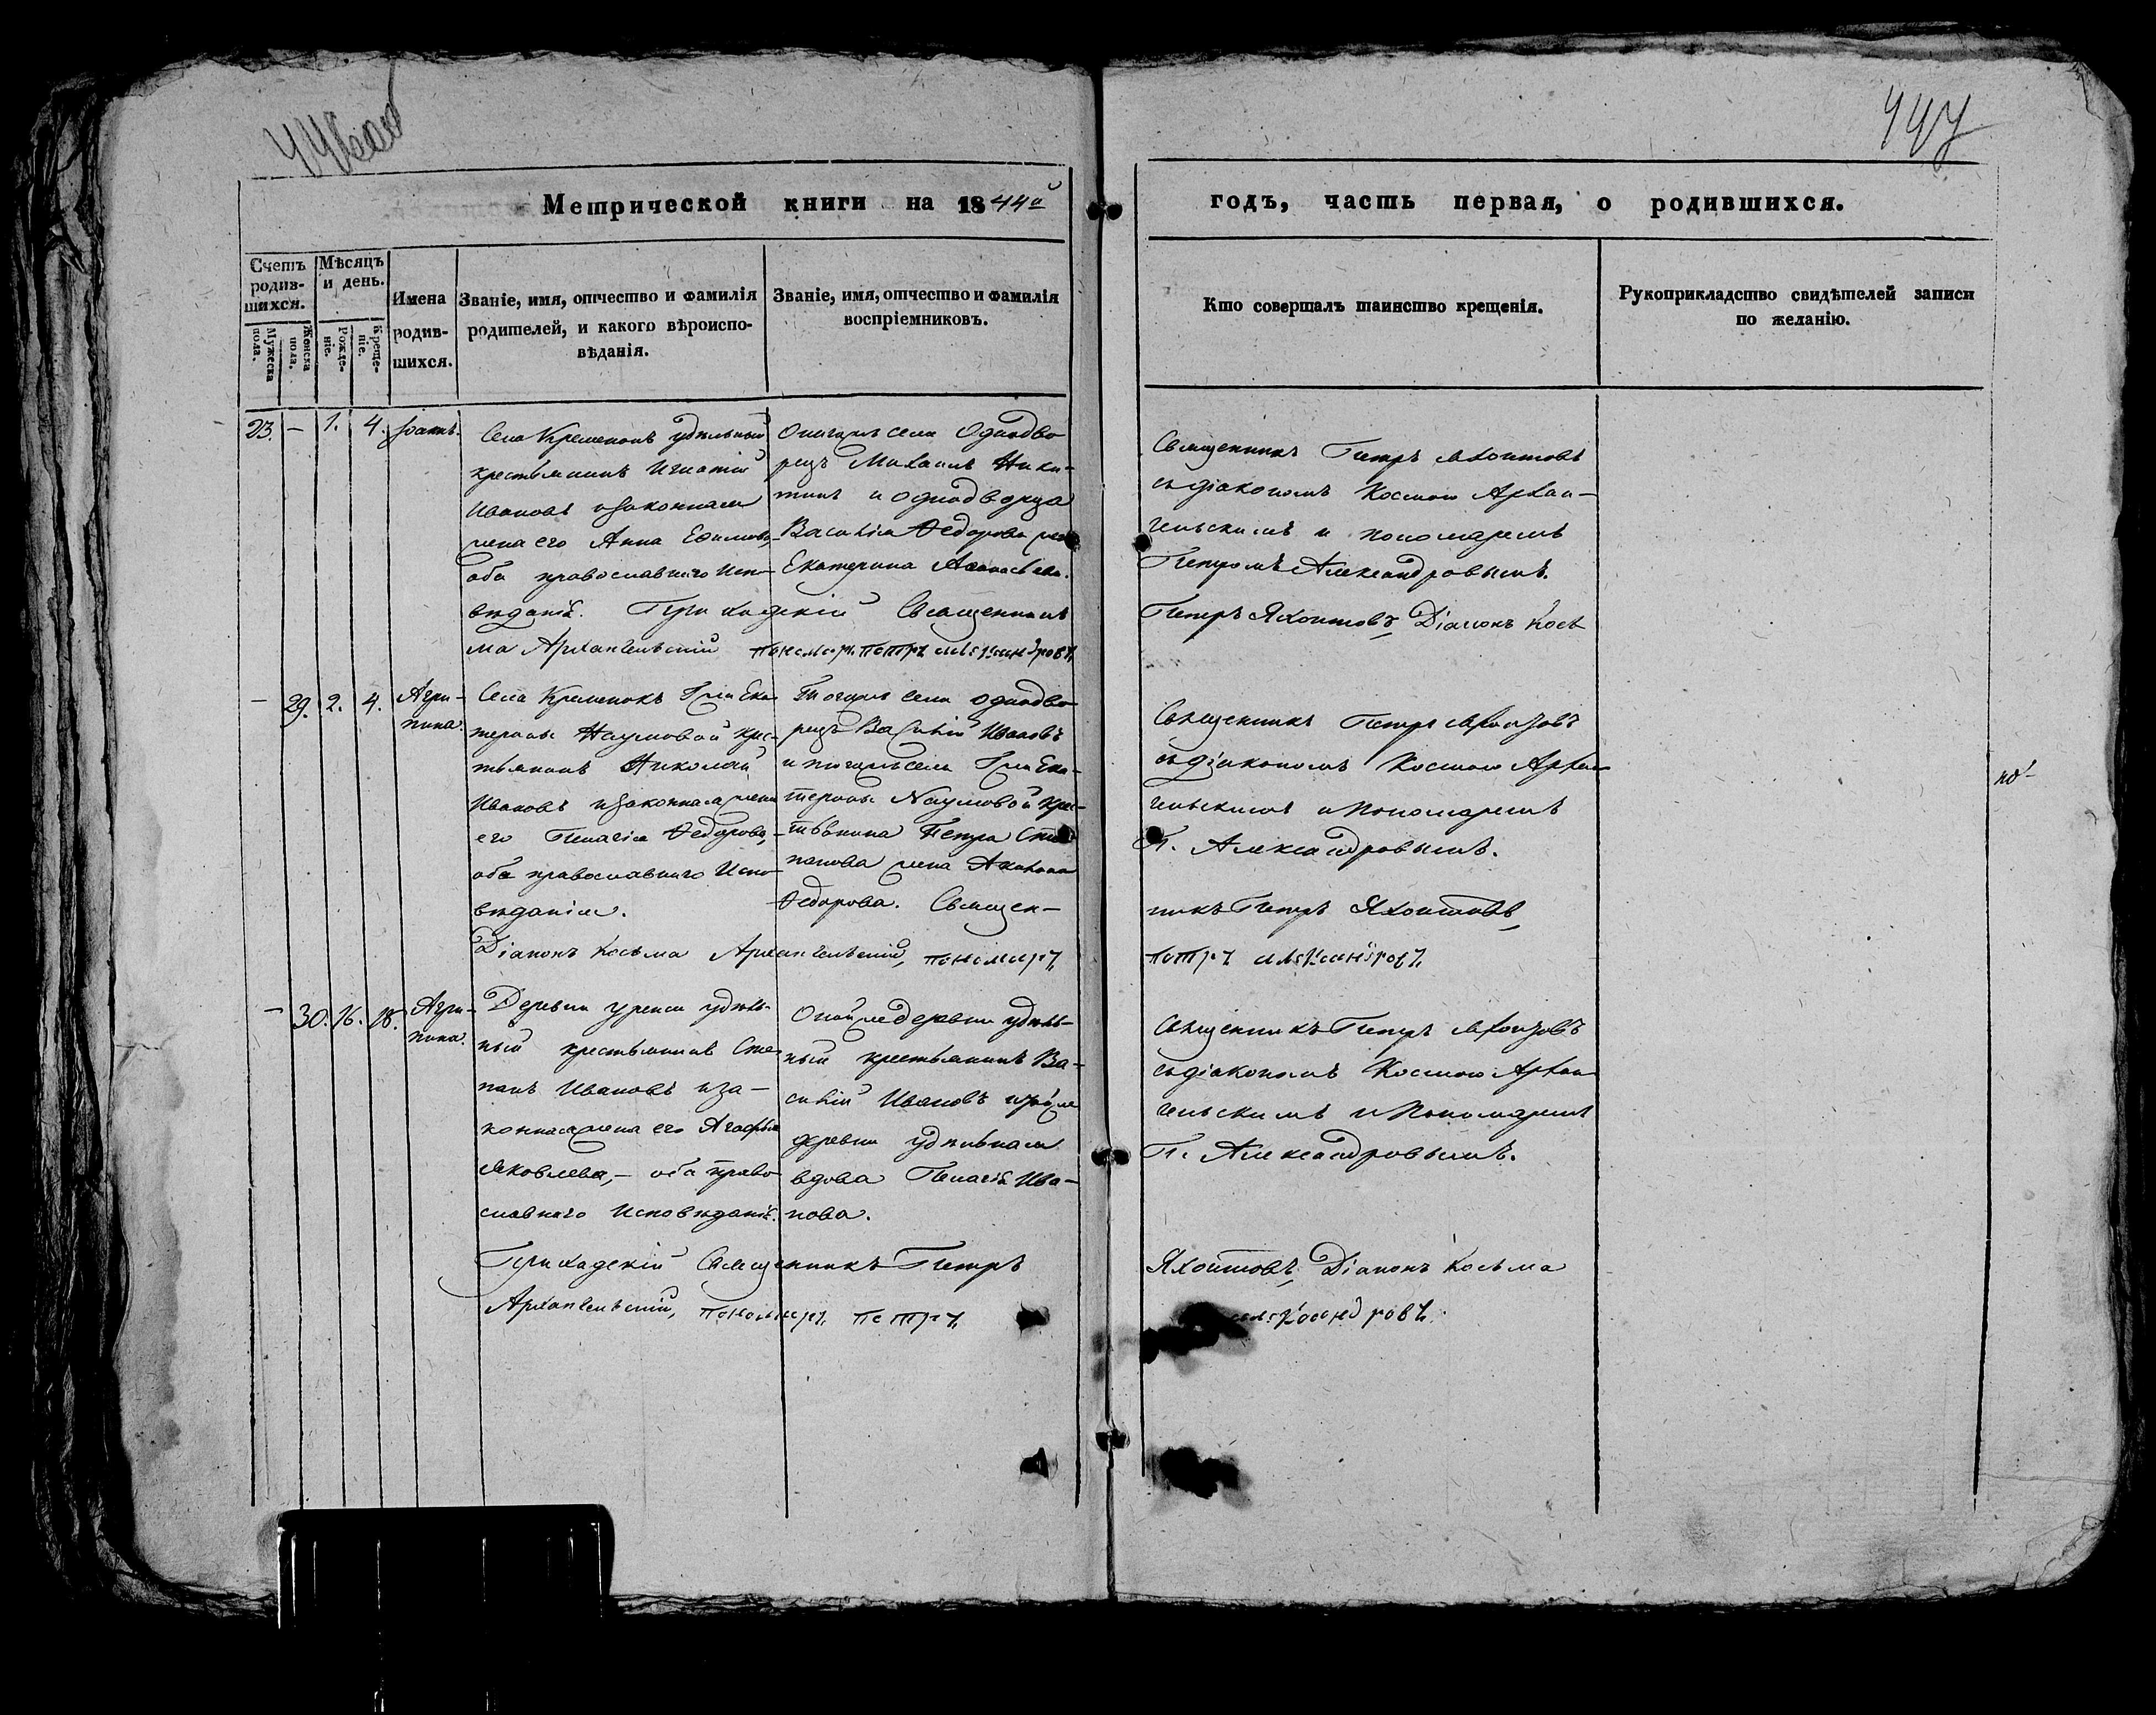 446об
447
Метрической книги на 1844й
годъ, часть первая, о родившихся.
Счетъ родив-шихся.
Мужеска пола.
Женска пола.
Мѣсяцъ и день.
Рожде-ніе.
Креще-ніе.
Имена родив-шихся.
Званіе, имя, отчество и фамилія
родителей, и какого вѣроиспо-
вѣданія.
Званіе, имя, отчество и фамилія
воспріемниковъ.
Кто совершалъ таинство крещенія.
Рукоприкладство свидѣтелей записи
по желанію.
23. – 1. 4. Іоаннъ.
Села Кременокъ удѣльный
крестьянинъ Игнатій
Ивановъ и законная
жена его Анна Ефимова,
оба православнаго испо-
вѣданія. Приходскій Священникъ
ма Архангельскій пономарь Петръ Александровъ
Онагожъ села Однодво
рецъ Михаилъ Ники-
тинъ и однодворца
Василія Федорова жена
Екатерина Афанасьева.
Священникъ Петръ Яхонтовъ
съ діакономъ Космою Архан-
гельскимъ и пономаремъ
Петромъ Александровымъ.
Петръ Яхонтовъ, Діаконъ Косъ
– 29. 2. 4. Агри-
пина.
Села Кременокъ Г-жи Ека
терины Наумовой крес-
тьянинъ Николай
Ивановъ и законная жена
его Пелагія Федорова,
оба православнаго Испо
вѣданія.
Діаконъ Косьма Архангельскій, пономарь
Тогожъ села однодво
рецъ Василій Ивановъ
и тогожъ села Г-жи Ека-
терины Наумовой крес-
тьянина Петра Сте
панова жена
Федорова. Священ-
Священникъ Петръ Яхонтовъ
съ діакономъ Космою Архан
гельскимъ и Пономаремъ
П. Александровымъ.
никъ Петръ Яхонтовъ,
Петръ Александровъ
– 30. 16. 18. Агри-
пина.
Деревни Уренки удѣль-
ный крестьянинъ Сте
панъ Ивановъ и за-
конная жена его Агафья
Яковлева, – оба право
славнаго Исповѣданія.
Приходскій Священникъ Петръ
Архангельскій, пономарь Петръ
Оной же деревни удѣль-
ный крестьянинъ Ва-
силій Ивановъ и той же
деревни удѣльная
вдова Пелагія Ива-
нова.
Священникъ Петръ Яхонтовъ
съ діакономъ Космою Архан
гельскимъ и Пономаремъ
П. Александровымъ.
Яхонтовъ, Діаконъ Косьма
Александровъ